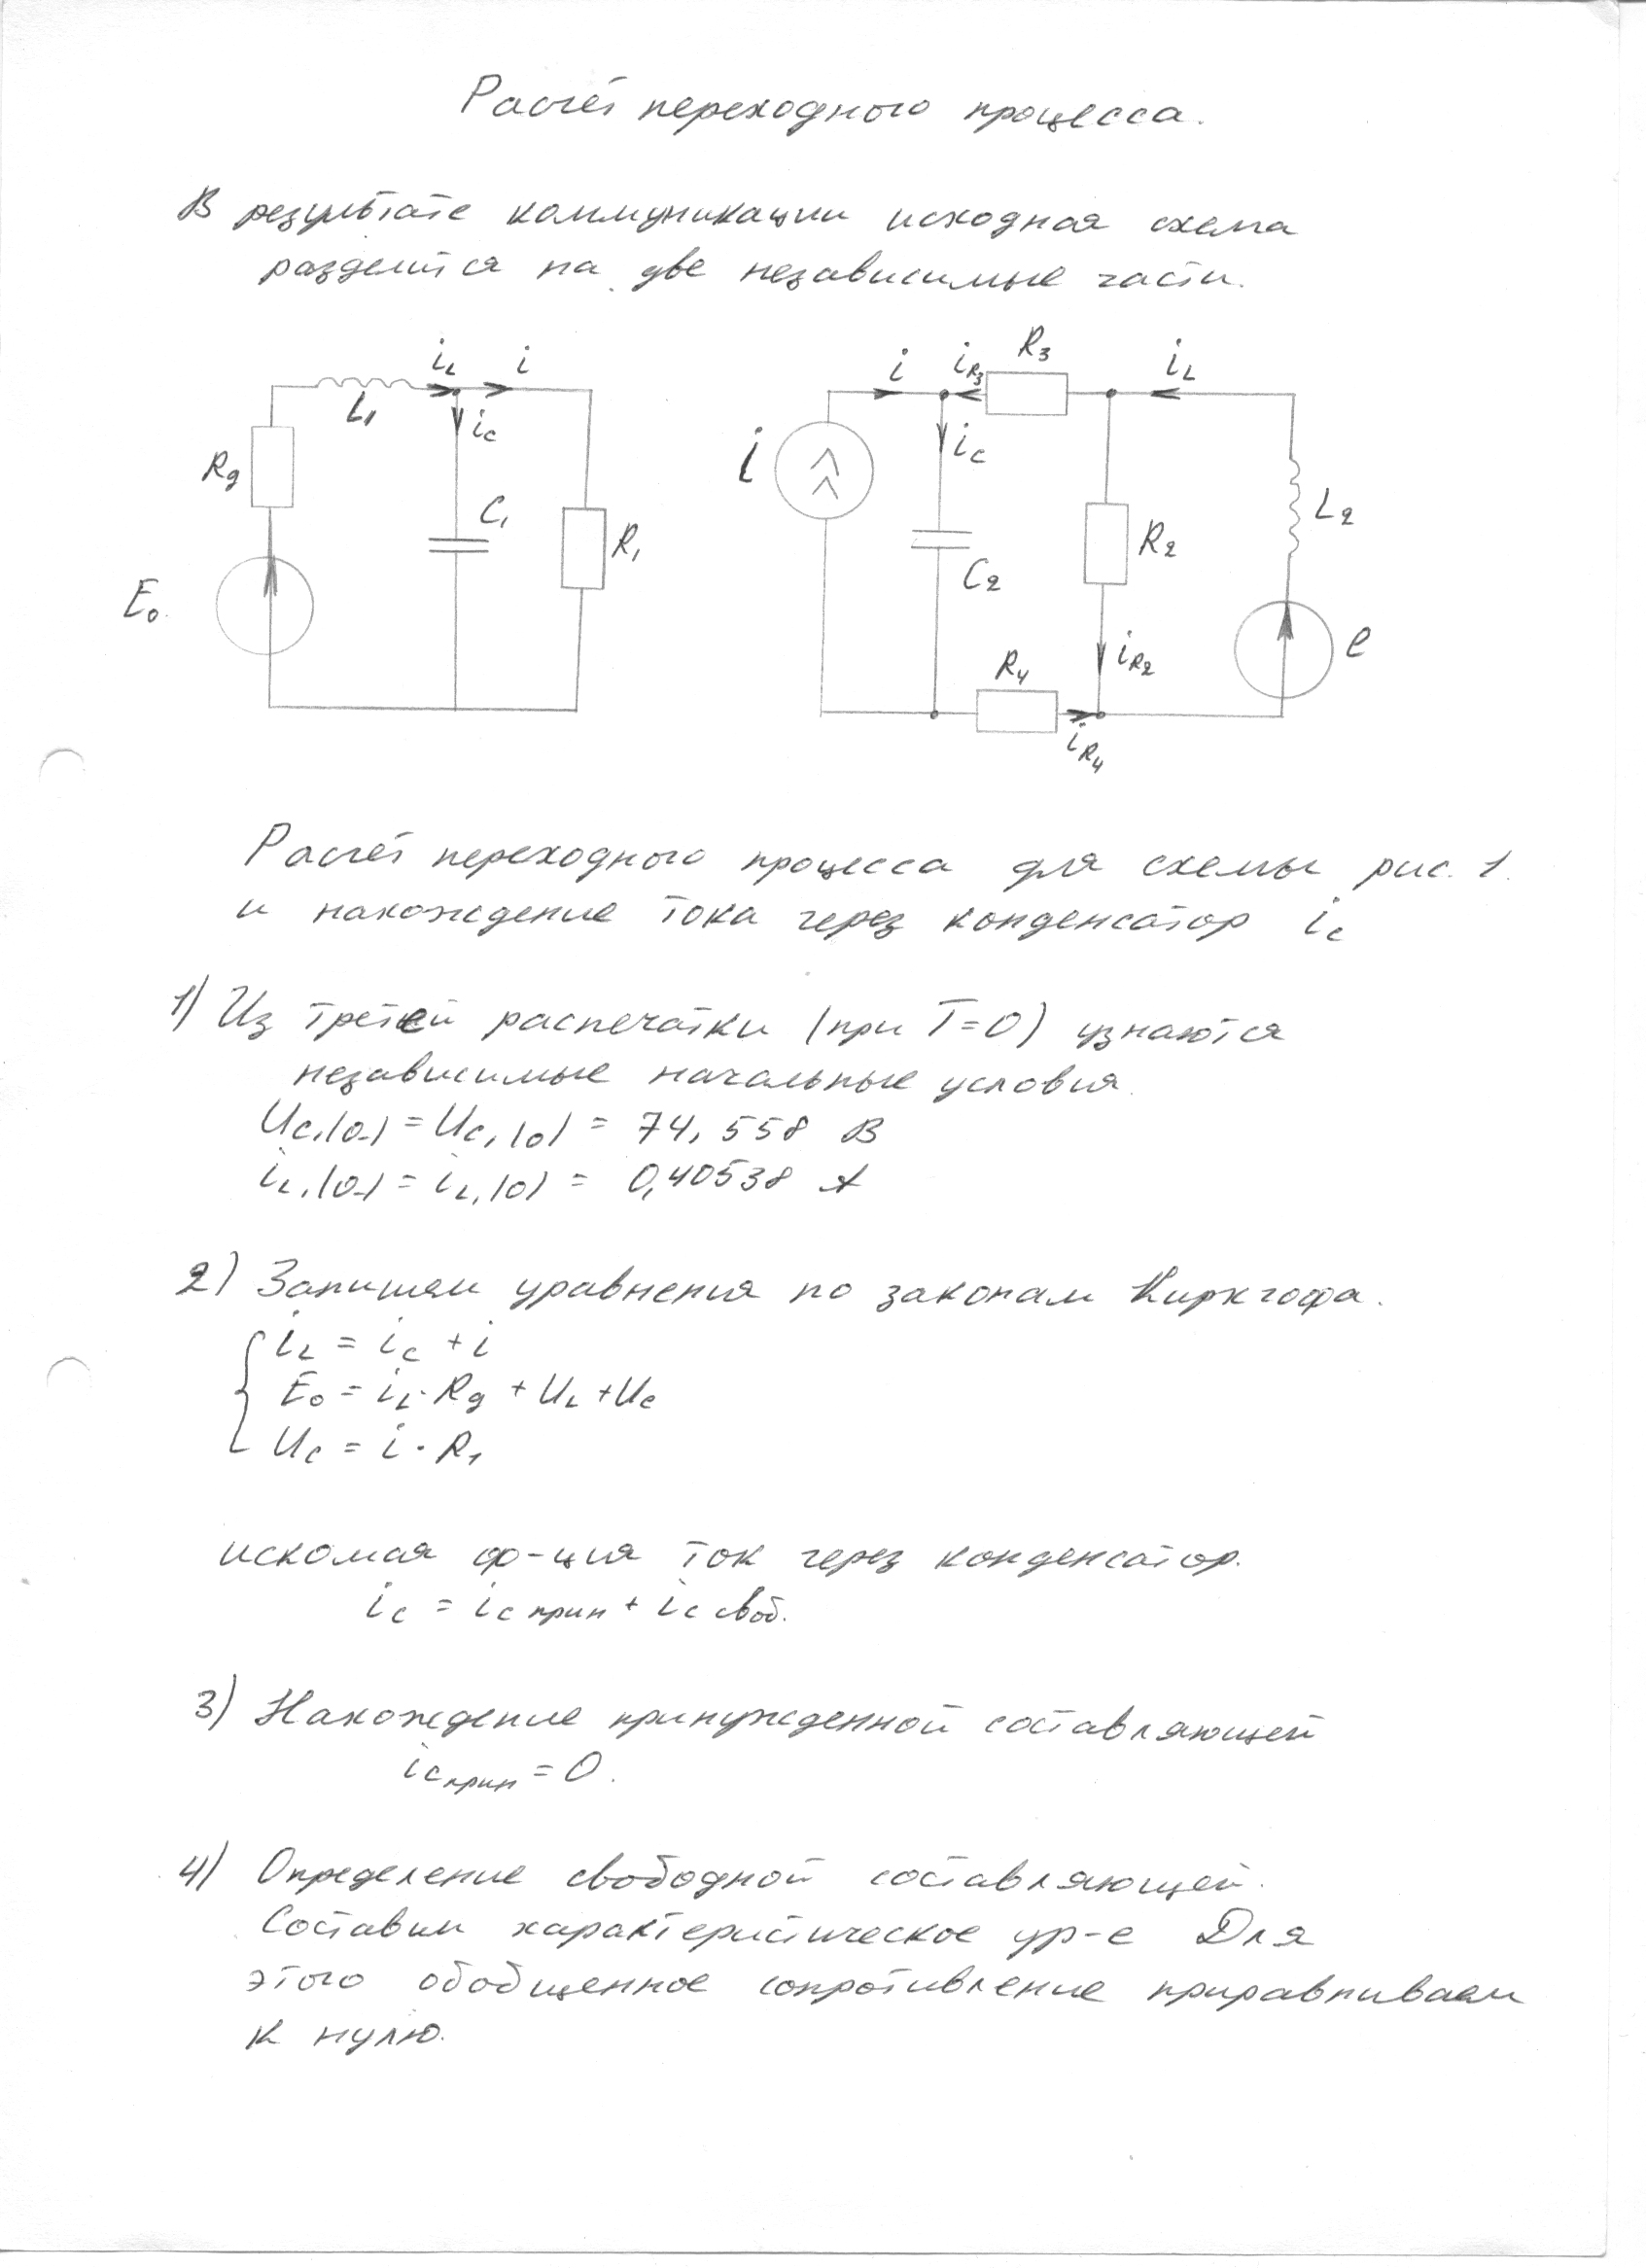 Расчёт переходного процесса.
В результате коммуникации исходная схема
разделится на две независимые части.
iL i
L1
iC
Rg
C1
R1
E0
i iR3 R3 iL
i
iC
C2
R2
L2
iR2
R4
iR4
e
Расчёт переходного процесса для схемы рис. 1.
и нахождение тока через конденсатор iC
1) Из третей распечатки (при T=0) узнаются
независимые начальные условия.
UC1(0-) = UC1(0) = 74,558 В
iL1(0-) = iL1(0) = 0,40538 А
2) Запишем уравнения по законам Киркгофа.
iL = iC + i
E0 = iL · Rg + UL + UC
UC = i · R1
искомая ф-ция ток через конденсатор.
iC = iC прин + iC своб.
3) Нахождение принужденной составляющей
iC прин = 0.
4) Определение свободной составляющей.
Составим характеристическое ур-е Для
этого обобщенное сопротивление приравниваем
к нулю.